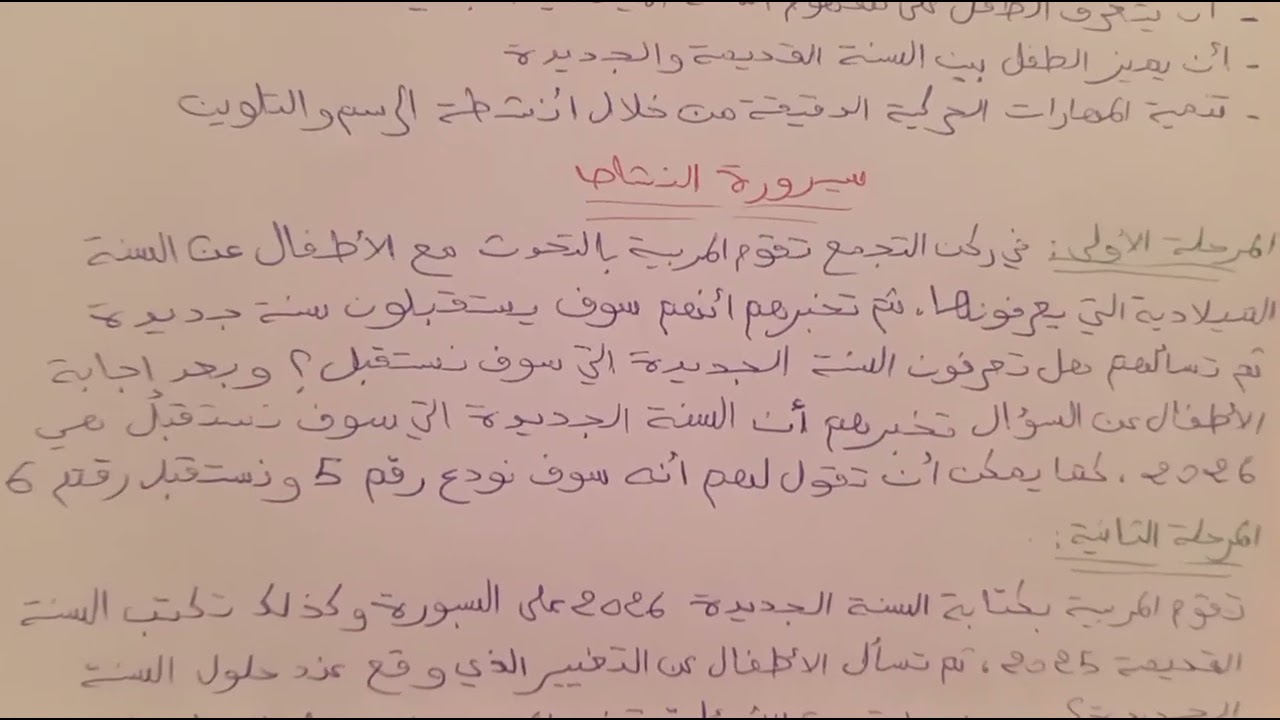 - أن يتعرف الطفل على مفهوم السنة
- أن يميز الطفل بين السنة القديمة والجديدة
- تنمية المهارات الحركية الدقيقة من خلال أنشطة الرسم والتلوين
سيرورة النشاط
المرحلة الأولى: في ركن التجمع تقوم المربية بالتحدث مع الأطفال عن السنة
الميلادية التي يعرفونها. ثم تخبرهم أنهم سوف يستقبلون سنة جديدة
ثم تسألهم هل تعرفون السنة الجديدة التي سوف نستقبل؟ وبعد إجابة
الأطفال عن السؤال تخبرهم أن السنة الجديدة التي سوف نستقبل هي
2026. كما يمكن أن تقول لهم أنه سوف نودع رقم 5 ونستقبل رقم 6
المرحلة الثانية:
تقوم المربية بكتابة السنة الجديدة 2026 على السبورة وكذلك تكتب السنة
القديمة 2025، ثم تسأل الأطفال عن التغيير الذي وقع عند حلول السنة
الجديدة؟